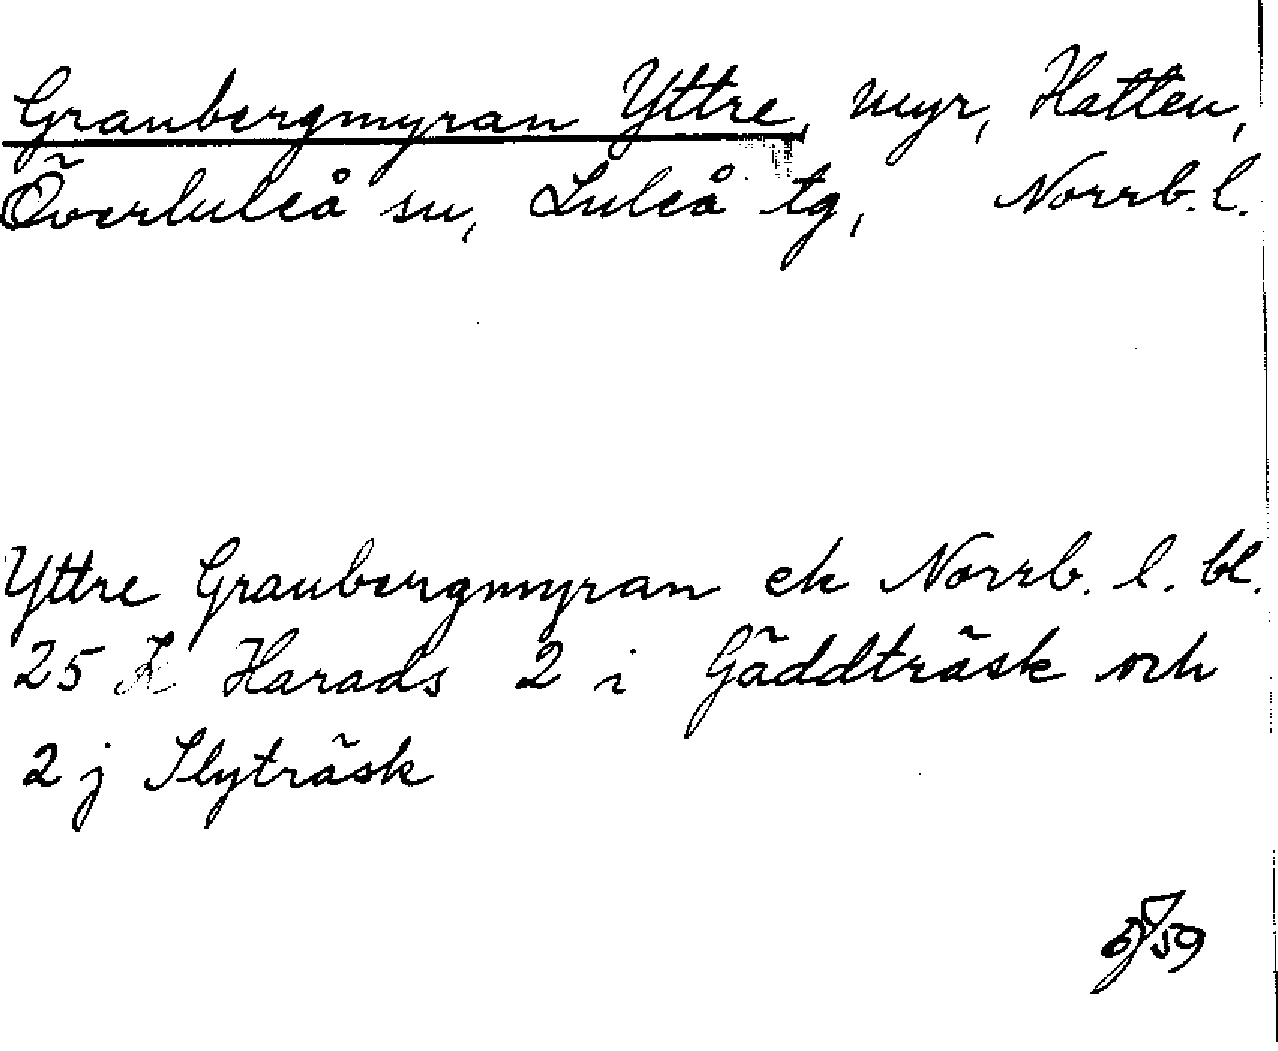 Granbergmyran Yttre, myr, Hatten,
Överluleå sn, Luleå tg, Norrb. l.
Yttre Granbergmyran ek Norrb. l. bl.
25 K Harads 2 i Gäddträsk och
2 j Slyträsk